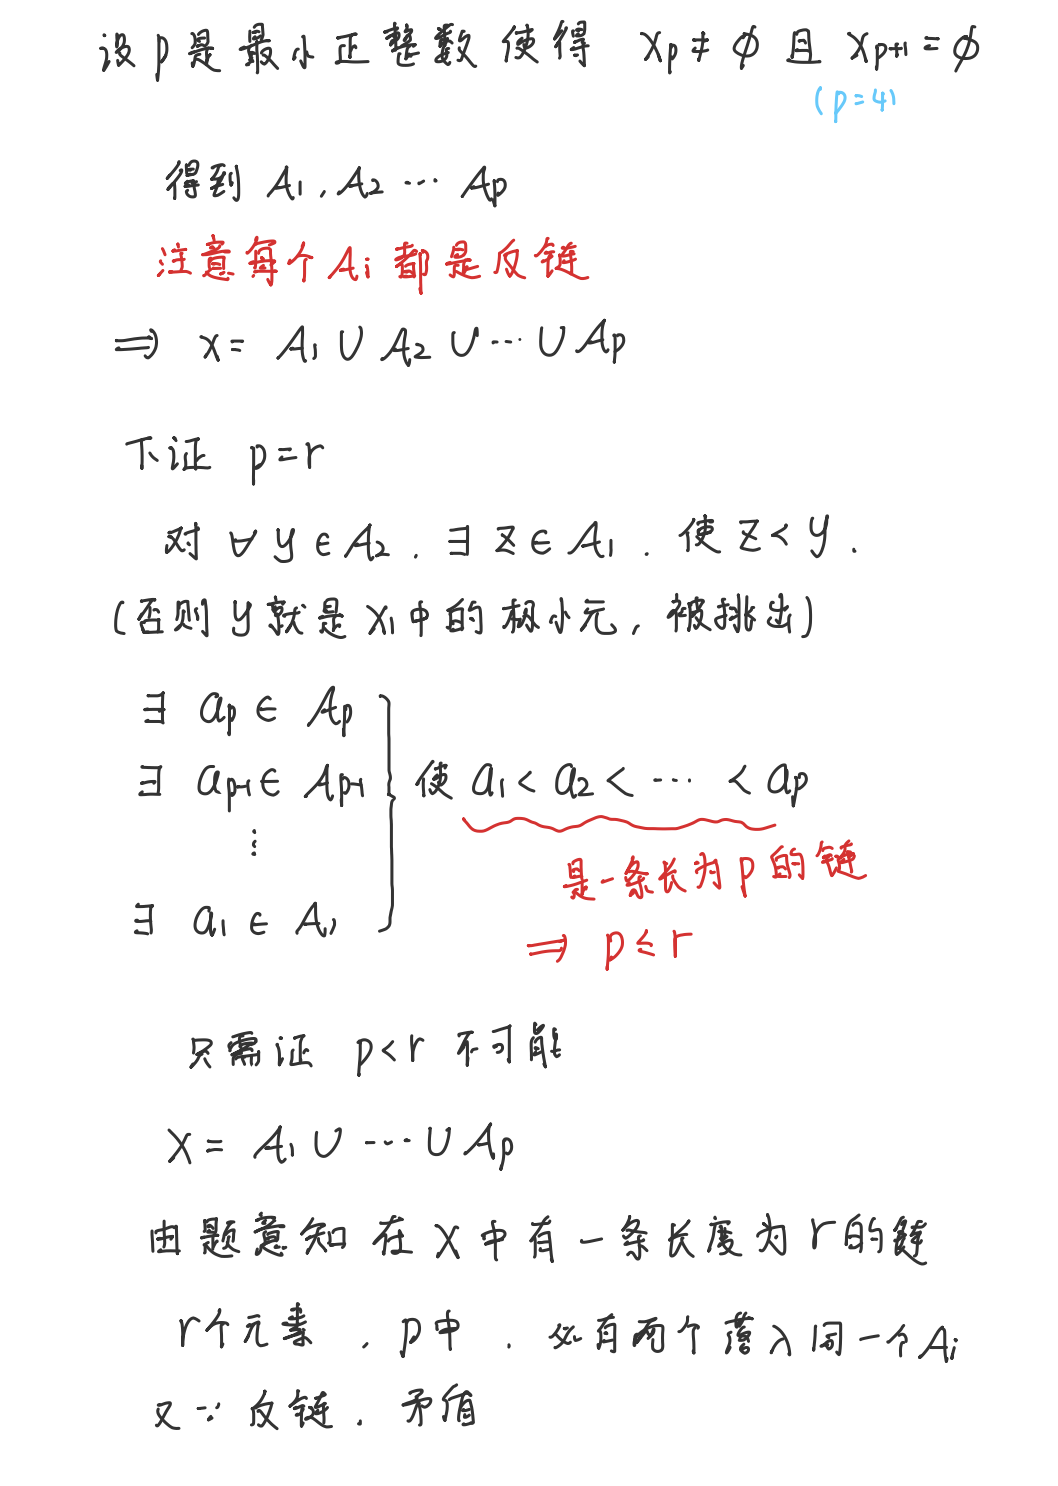 设 p 是最小正整数使得 Xp ≠ ∅ 且 Xp+1 = ∅
(p=4)
得到 A1, A2 ⋯ Ap
注意每个 Ai 都是反链
⟹ X = A1 ∪ A2 ∪ ⋯ ∪ Ap
下证 p = r
对 ∀ y ∈ A2 . ∃ z ∈ A1 . 使 z < y .
(否则 y 就是 X1 中的极小元, 被排出)
∃ ap ∈ Ap
∃ ap-1 ∈ Ap-1
⋮
∃ a1 ∈ A1
使 a1 < a2 < ⋯ < ap
是一条长为 p 的链
⟹ p ≤ r
只需证 p < r 不可能
X = A1 ∪ ⋯ ∪ Ap
由题意知 在 X 中有一条长度为 r 的链
r个元素 , p中 . 必有两个落入同一个 Ai
又 ∵ 反链 . 矛盾